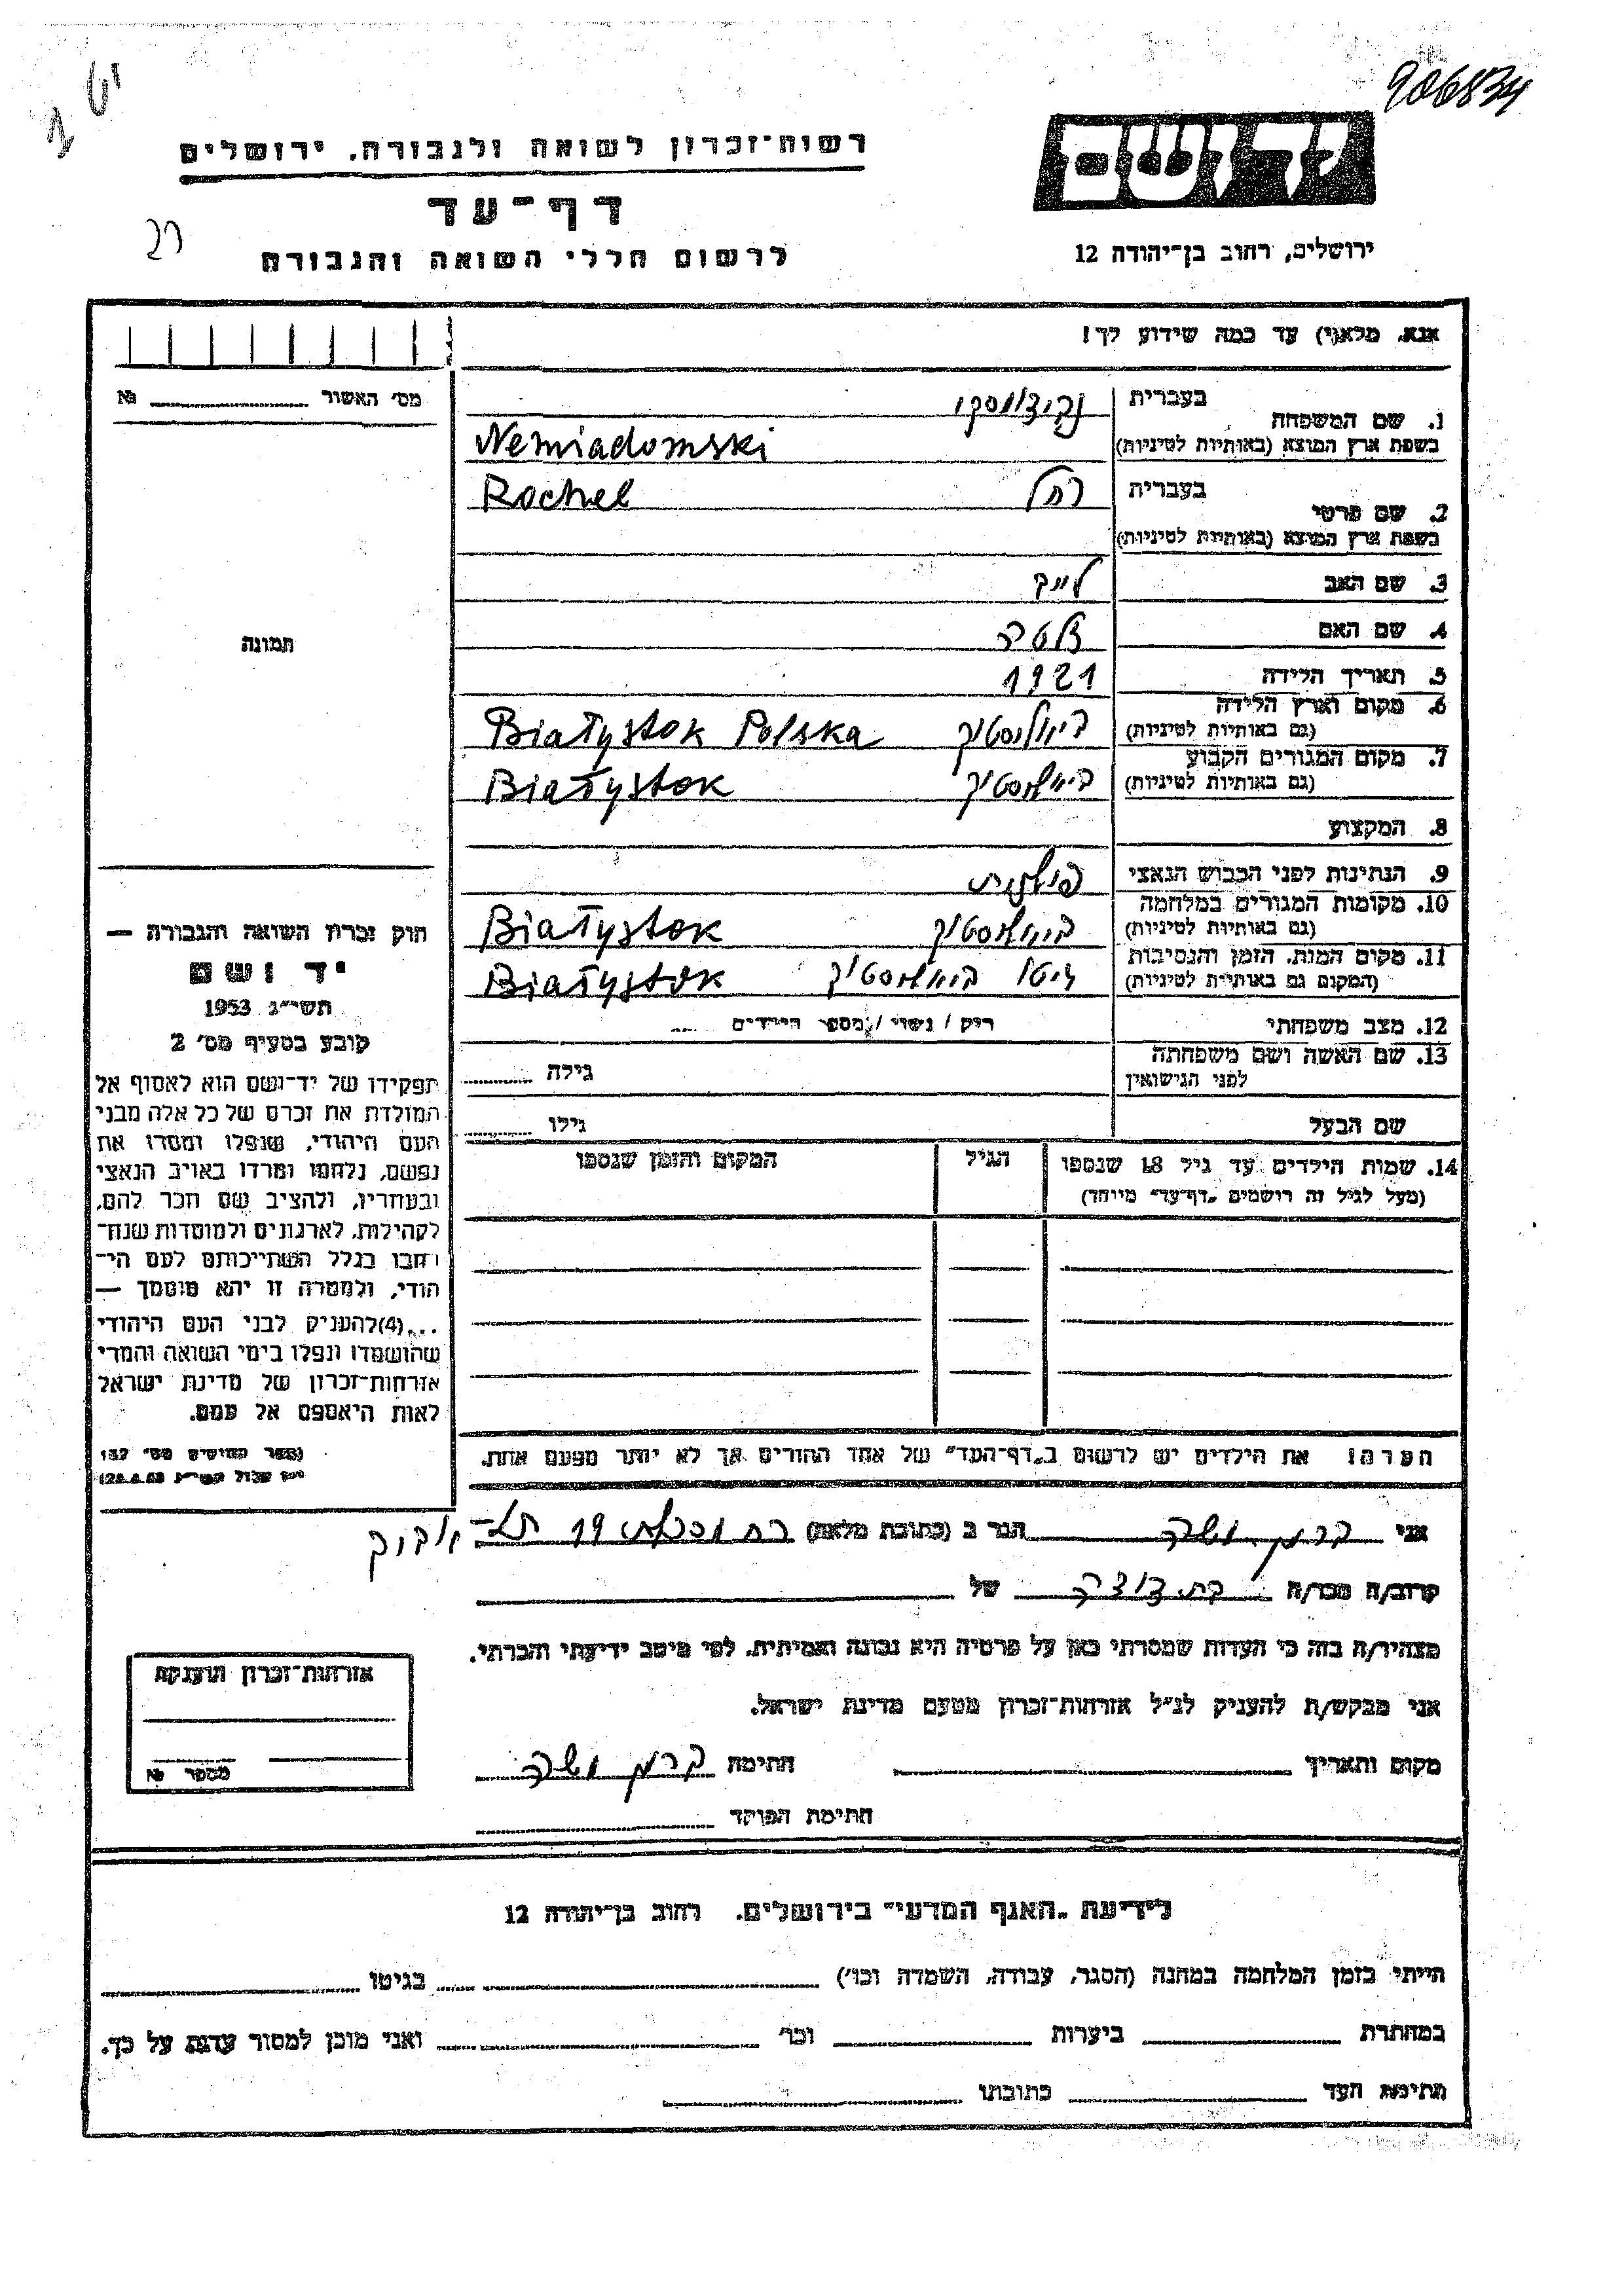 906834
יד ושם
ירושלים, רחוב בן־יהודה 12
רשות־זכרון לשואה ולגבורה, ירושלים
דף־עד
לרשום חללי השואה והגבורה
אנא, מלא(י) עד כמה שידוע לך!
מס׳ האשור № 
1. שם המשפחה
בעברית
בשפת ארץ המוצא (באותיות לטיניות)
Nemiadomski
2. שם פרטי
בעברית רחל Rochel
בשפת ארץ המוצא (באותיות לטיניות)
3. שם האב לייב
4. שם האם
5. תאריך הלידה 1921
6. מקום וארץ הלידה
(גם באותיות לטיניות) ביאליסטוק Białystok Polska
7. מקום המגורים הקבוע
(גם באותיות לטיניות) ביאליסטוק Białystok
8. המקצוע
9. הנתינות לפני הכבוש הנאצי פולנית
10. מקומות המגורים במלחמה
(גם באותיות לטיניות) ביאליסטוק Białystok
11. מקום המות, הזמן והנסיבות
(המקום גם באותיות לטיניות) גיטו ביאליסטוק Białystok
12. מצב משפחתי רוק / נשוי / מספר הילדים
13. שם האשה ושם משפחתה
לפני הנישואין גילה
שם הבעל גילו
14. שמות הילדים עד גיל 18 שנספו הגיל המקום והזמן שנספו
(מעל לגיל זה רושמים „דף־עד״ מיוחד)
הערה! את הילדים יש לרשום ב„דף־העד״ של אחד ההורים אך לא יותר מפעם אחת.
תמונה
חוק זכרון השואה והגבורה —
יד ושם
תשי״ג 1953
קובע בסעיף מס׳ 2
תפקידו של יד־ושם הוא לאסוף אל
המולדת את זכרם של כל אלה מבני
העם היהודי, שנפלו ומסרו את
נפשם, נלחמו ומרדו באויב הנאצי
ובעוזריו, ולהציב שם וזכר להם,
לקהילות, לארגונים ולמוסדות שנח־
רבו בגלל השתייכותם לעם הי־
הודי, ולמטרה זו יהא מוסמך —
...(4)להעניק לבני העם היהודי
שהושמדו ונפלו בימי השואה והמרי
אזרחות־זכרון של מדינת ישראל
לאות היאספם אל עמם.
אני ברמן משה הגר ב (כתובת מלאה) 19 תל־אביב
קרוב/ה מכר/ה בת דודה של
מצהיר/ה בזה כי העדות שמסרתי כאן על פרטיה היא נכונה ואמיתית, לפי מיטב ידיעתי והכרתי.
אני מבקש/ת להעניק לנ״ל אזרחות־זכרון מטעם מדינת ישראל.
מקום ותאריך חתימה ברמן משה
חתימת הפוקד
אזרחות־זכרון הוענקה
מספר №
לידיעת „האגף המדעי״ בירושלים, רחוב בן־יהודה 12
הייתי בזמן המלחמה במחנה (הסגר, עבודה, השמדה וכו׳) בגיטו
במחתרת ביערות וכו׳ ואני מוכן למסור עדות על כך.
חתימת העד כתובתו